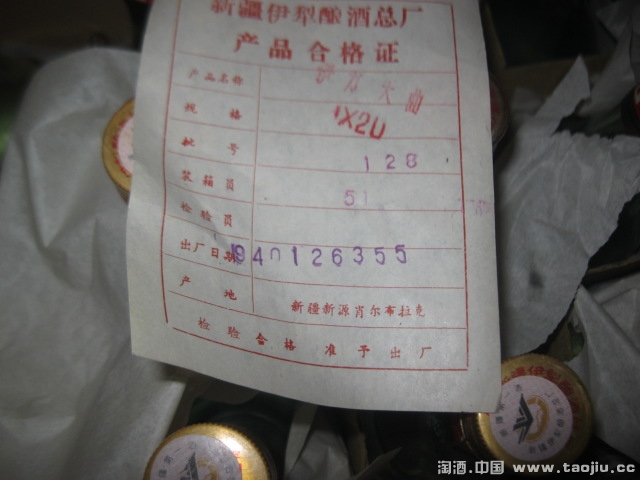 新疆伊犁酿酒总厂
产品合格证
产品名称 大曲
规格 1X20
批号 128
装箱员 51
检验员
出厂日期 940126355
产地 新疆新源肖尔布拉克
检验合格 准予出厂
淘酒.中国 www.taojiu.cc